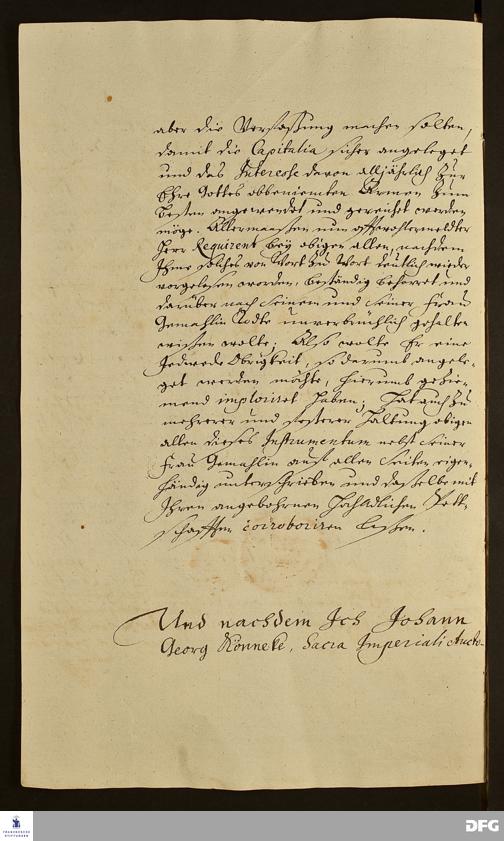 aber die Verfassung machen solten,
damit die Capitalia sicher angeleget
und das Interesse davon alljährlich zur
Ehre Gottes obbeniemten Armen zum
besten angewendet und gereichet werden
möge. Allermaassen nun offterwehnter
Herr Requirent bey obigen allen, nachdem
Ihme solches von Wort zu Wort deutlich wieder
vorgelesen worden, beständig beharret und
darüber nach seinem und seiner Frau
Gemahlin Todte unverbrüchlich gehalten
wissen wolte; Also wolte Er eine
Jedwede Obrigkeit, so darumb angele-
get werden möchte, hierumb gezie-
mend imploriret haben; Hat auch zu
mehrerer und festerer Haltung obigen
allen dieses Instrumentum nebst seiner
Frau Gemahlin auf allen Seiten eigen-
händig unterschrieben und dasselbe mit
Ihren angebohrnen Hochadlichen Pett-
schafften corroboriren lassen.
Und nachdem Ich Johann
Georg Könneke, Sacra Imperiali Aucto-
FRANCKESCHE
STIFTUNGEN
DFG